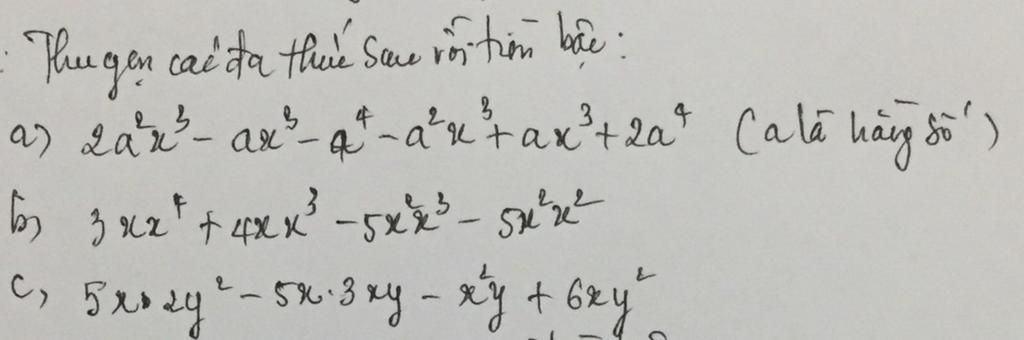 : Thu gọn các đa thức sau rồi tìm bậc:
a) 2a²x³ - ax³ - a⁴ - a²x³ + ax³ + 2a⁴ (a là hằng số)
b) 3xx⁴ + 4xx³ - 5x²x³ - 5x²x²
c, 5x·2y² - 5x·3xy - x²y + 6xy²